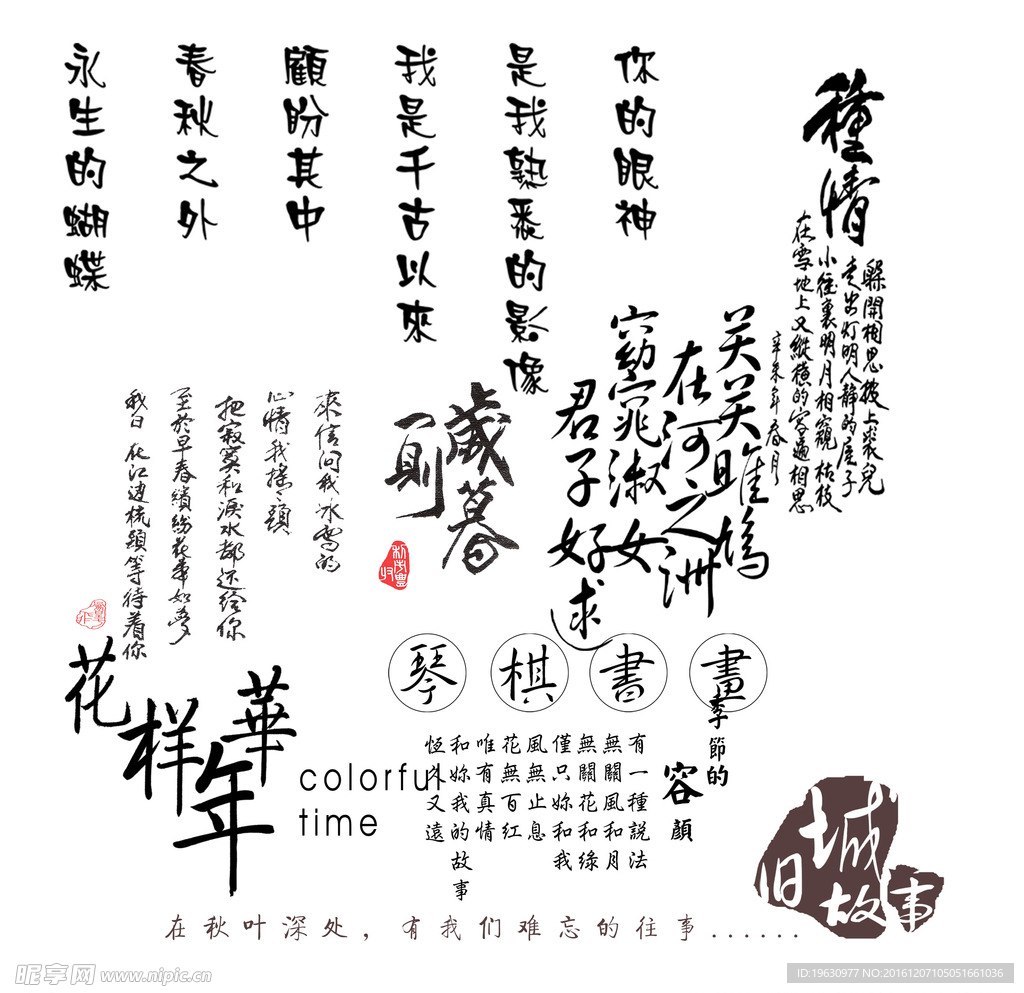 你的眼神
是我熟悉的影像
我是千古以來
顧盼其中
春秋之外
永生的蝴蝶
種情
躲開相思披上裘兒
走出灯明人静的屋子
小徑裏明月相窺枯枝
在雪地上又縱橫的写遍相思
辛未年春月
关关雎鸠
在河之洲
窈窕淑女
君子好逑
歲暮
一則
來信问我冰雪的
心情我摇摇頭
把寂寞和淚水都还给你
至於早春缤紛花事如夢
我只在江边梳頭等待着你
花样年華
colorful
time
琴
棋
書
畫
季節的
容顏
有一種説法
無關風和月
無關花和綠
僅只妳和我
風無止息
花無百红
唯有真情
和妳我的故事
恆久又遠
旧城
故事
在秋叶深处，有我们难忘的往事......
昵享网 www.nipic.cn
ID:19630977 NO:20161207105051661036